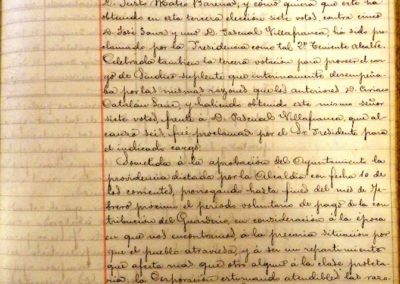 D. Justo Mateo Barena, y como quiera que este ha
obtenido en esta tercera elección siete votos, contra cinco
D. José Sanz y uno D. Pascual Villafranca, ha sido pro
clamado por la Presidencia como tal 2º Teniente Alcalde.
Celebrada tambien la tercera votación para proveer el car
go de Síndico suplente que interinamente desempeña
ba por las mismas razones que las anteriores D. Ciriaco
Catalán Sanz, y habiendo obtenido este mismo señor
siete votos, frente á D. Pascual Villafranca, que al
canza seis, fué proclamado por el Sr. Presidente para
el indicado cargo.
Sometida á la aprobación del Ayuntamiento la
providencia dictada por la Alcaldía con fecha 10 de
los corrientes, prorrogando hasta fines del mes de Fe-
brero próximo el periodo voluntario de pago de la con
tribución del Guarderio, en consideración á la época
en que nos encontramos á la precaria situación por
que el pueblo atraviesa, y á ser un repartimiento
que afecta mas que otro alguno á la clase proleta-
ria, la Corporación estimando atendibles las razo-